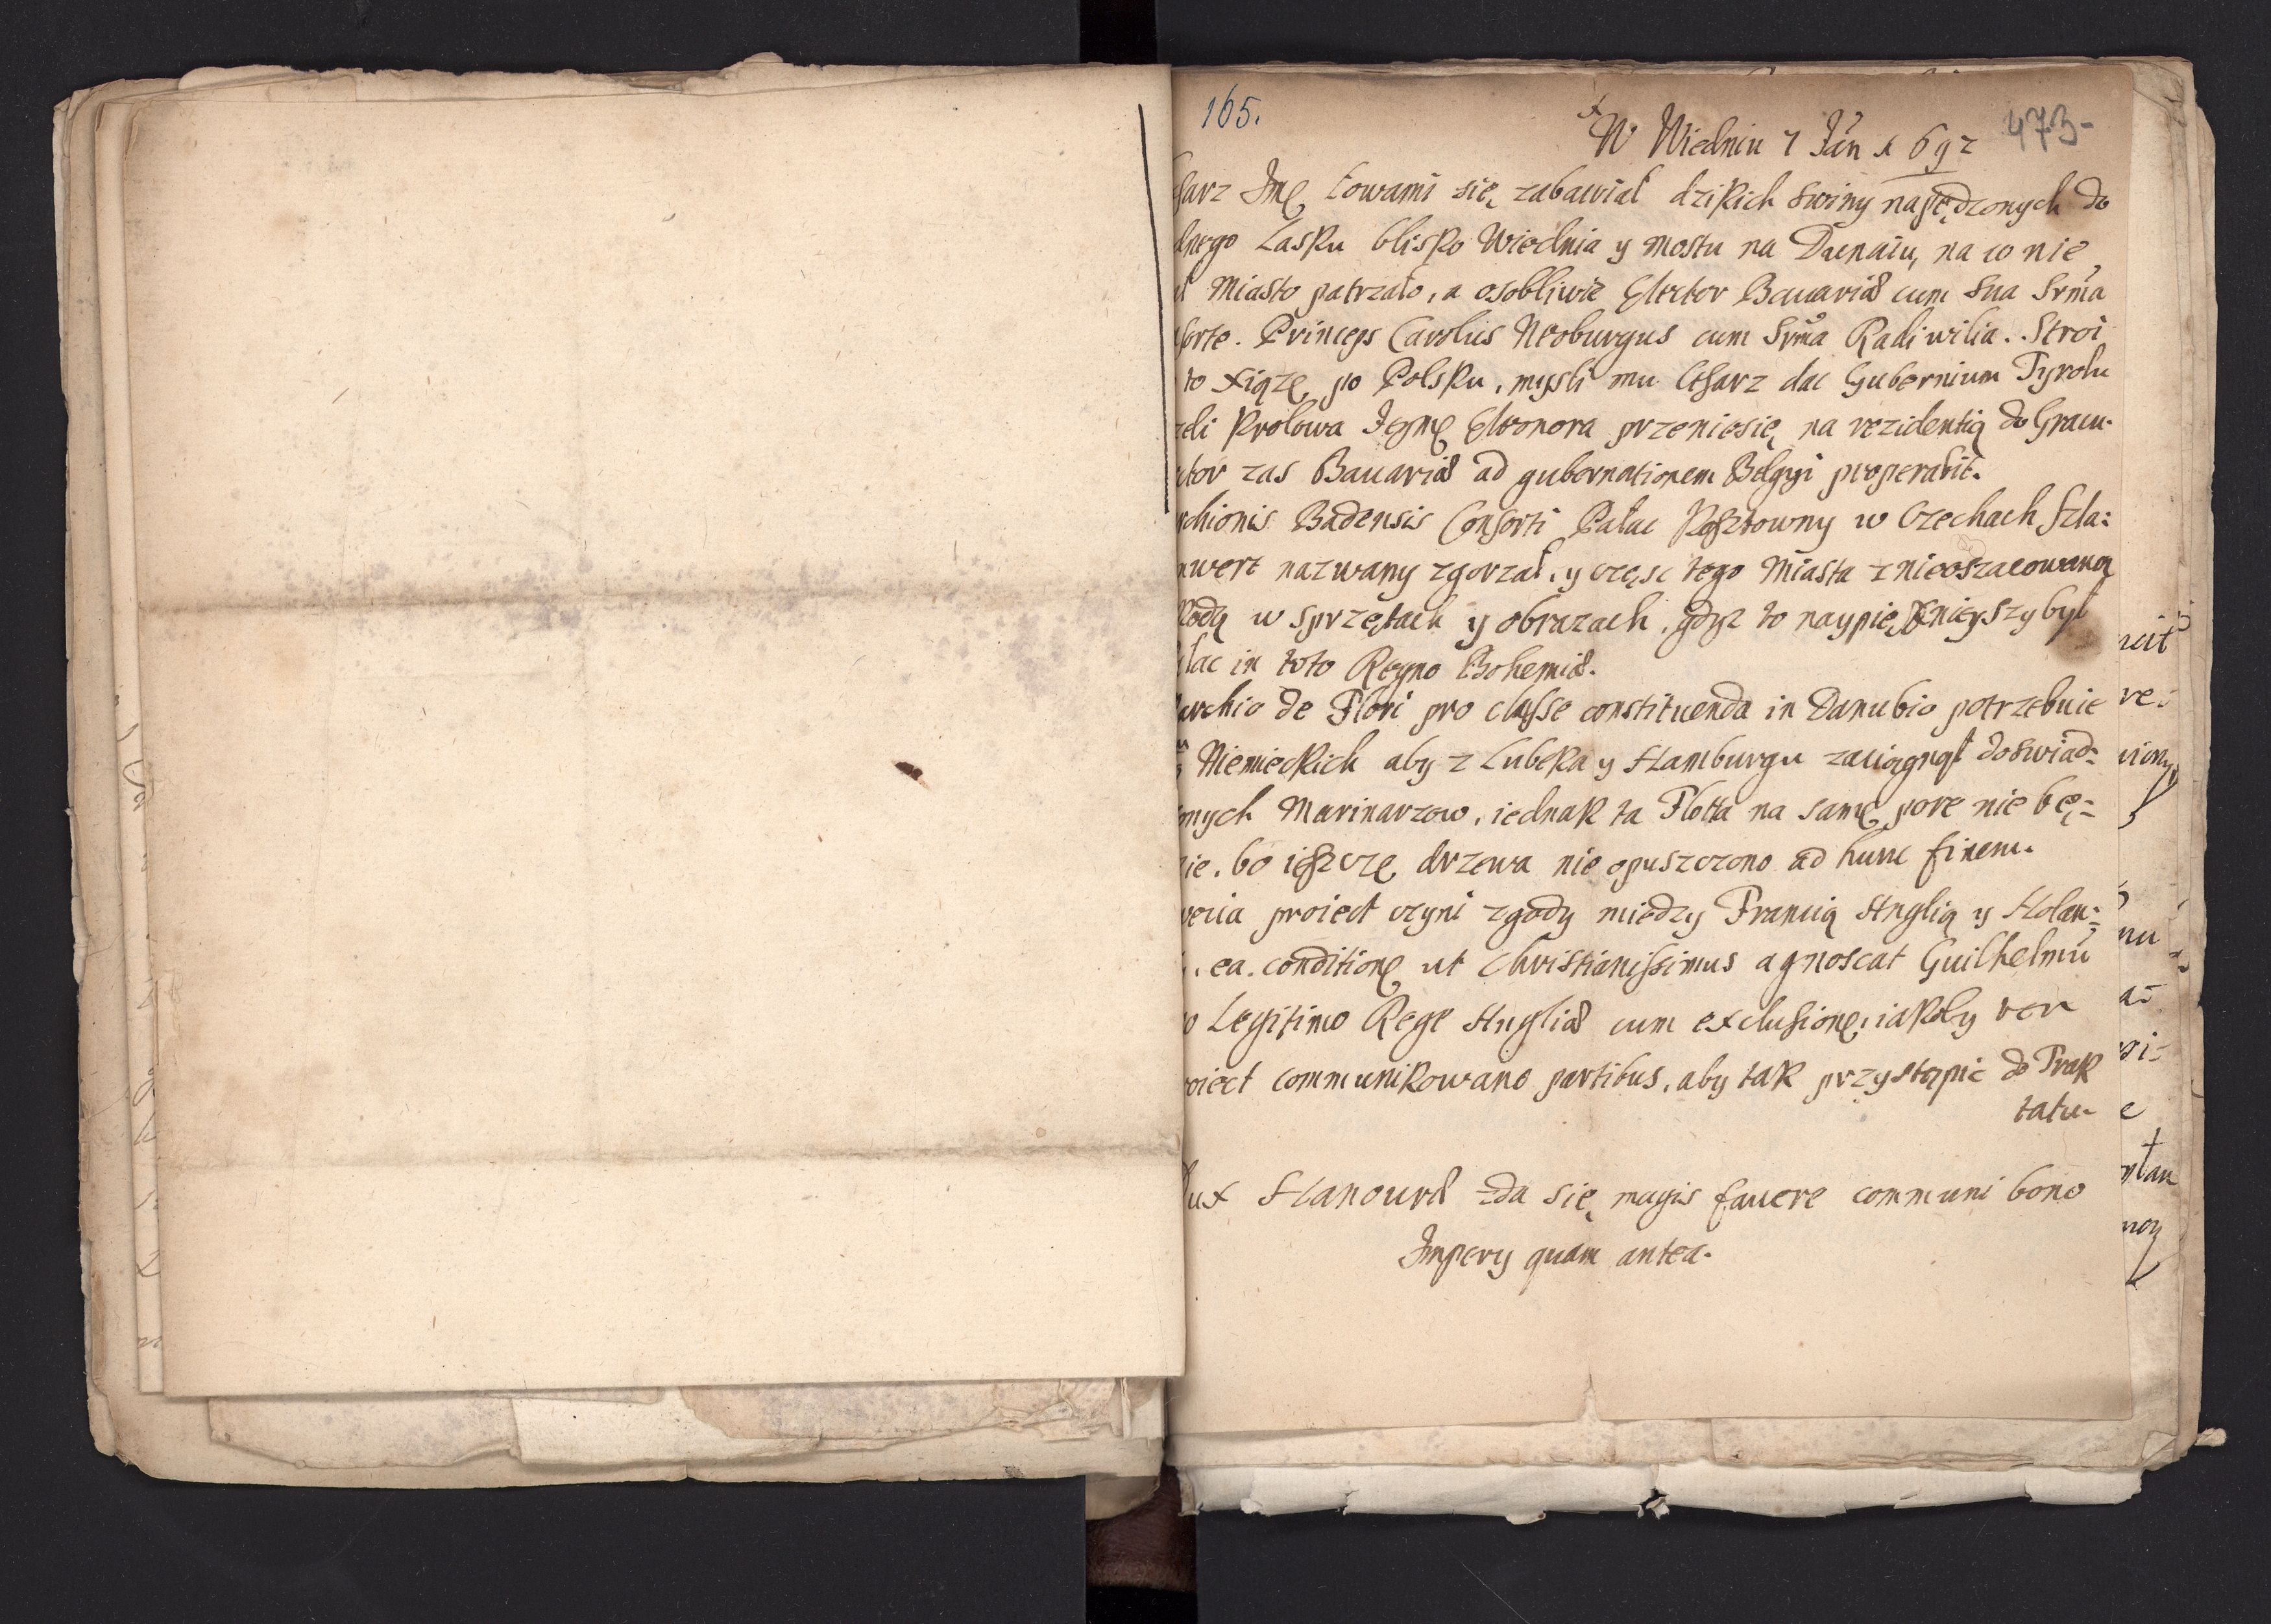 165.
473-
W Wiedniu 7 Jan 1692
sarz Jme Łowami się zabawiał dzikich swiny napędzonych do
dnego Lasku blisko Wiednia y mostu na Dunaiu, na co nie
Miasto patrzało, a osobliwie Elector Bauariæ cum sua Srma
sorte. Princeps Carolus Neoburgus cum Srma Radiwilia. Stroi
to xiąże po Polsku, mysli mu Cesarz dac Gubernium Tyrolu
zeli Krolowa Jeyme Eleonora przeniesię na rezidentią do Gracu.
ctor zas Bauariæ ad gubernationem Belgij properabit.
rchionis Badensis Consorti Pałac Kosztowny w Czechach Szla:
nwert nazwany zgorzał, y częsc tego Miasta z nieoszacowaną
kodą w sprzętach y obrazach, gdyz to naypięknieyszy był
łac in toto Regno Bohemiæ.
archio de Flori pro classe constituenda in Danubio potrzebuie
Niemieckich aby z Lubeka y Hamburgu zaciągnął doswiad:
onych Marinarzow, iednak ta Flotta na samę pore nie bę:
zie, bo ieszcze drzewa nie opuszczono ad hunc finem.
vecia proiect czyni zgody miedzy Francią Anglią y Holan:
, ea conditione ut Christianissimus agnoscat Guilhelmu
o Legitimo Rege Angliæ cum exclusione, iakoby ten
oiect communikowano partibus, aby tak przystąpic do Trak
tatu.
ux Hanouræ zda się magis fauere communi bono
Impery quam antea.